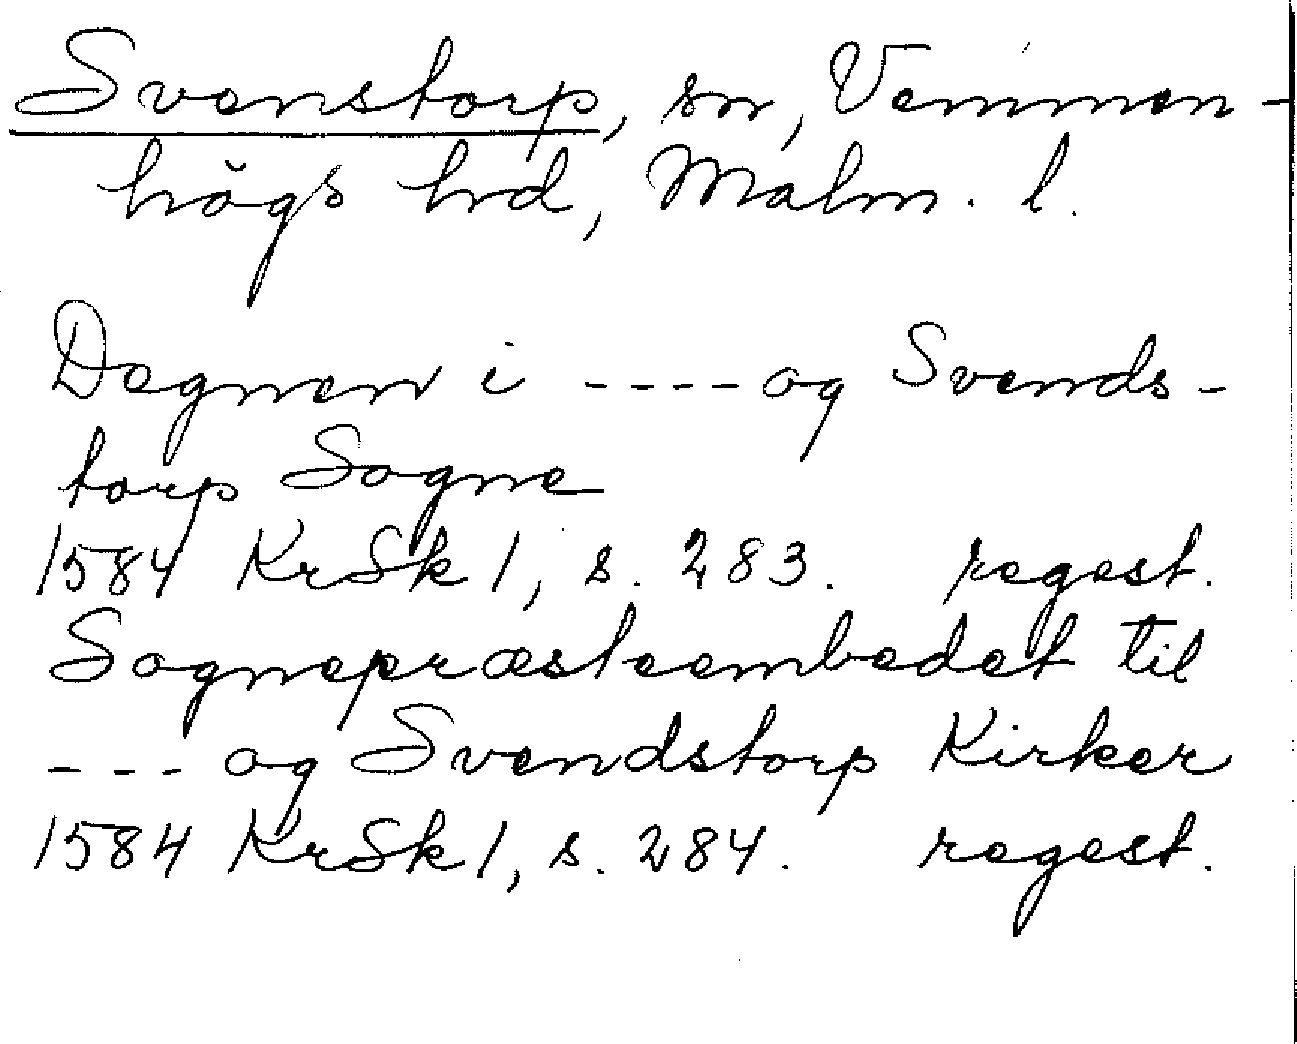 Svenstorp, sn, Vemmen-
högs hd, Malm. l.
Degnen i ---- og Svends-
torp Sogne
1584 KrSk 1, s. 283. regest.
Sognepræsteembedet til
--- og Svendstorp Kirker
1584 KrSk 1, s. 284. regest.